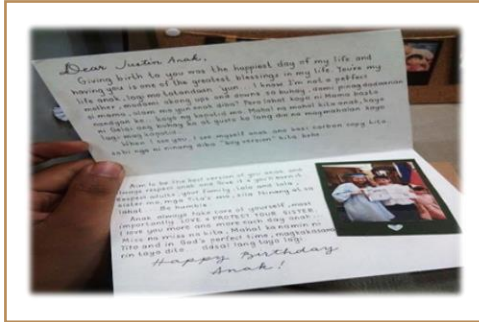 Dear Justin Anak,
Giving birth to you was the happiest day of my life and
having you is one of the greatest blessings in my life. You're my
life anak, lagi mo tatandaan 'yun... I know I'm not a perfect
mother, madami akong ups and downs sa buhay, dami pinagdadaanan
si mama, alam mo yan anak diba? Pero lahat kaya ni Mama basta
nandyan ka, kayo ng kapatid mo. Mahal na mahal kita anak, kayo
ni
lagi mag kapatid...
When I see you, I see myself anak
sabi nga ni ninang diba "boy version" kita hehe.
Aim to be the best version of you anak and
always respect
Respect adults, your family, lolo and lola,
sister mo, mga Tita's mo, sila ninang at sa
lahat. Be humble.
Anak always take care of yourself, most
importantly LOVE & PROTECT YOUR SISTER.
I love you more and more each day anak...
Miss na miss na kita. Mahal ka namin ni
Tito and in God's perfect time, magkakasama
rin tayo dito. Usap lang tayo lagi.
Happy Birthday
Anak!